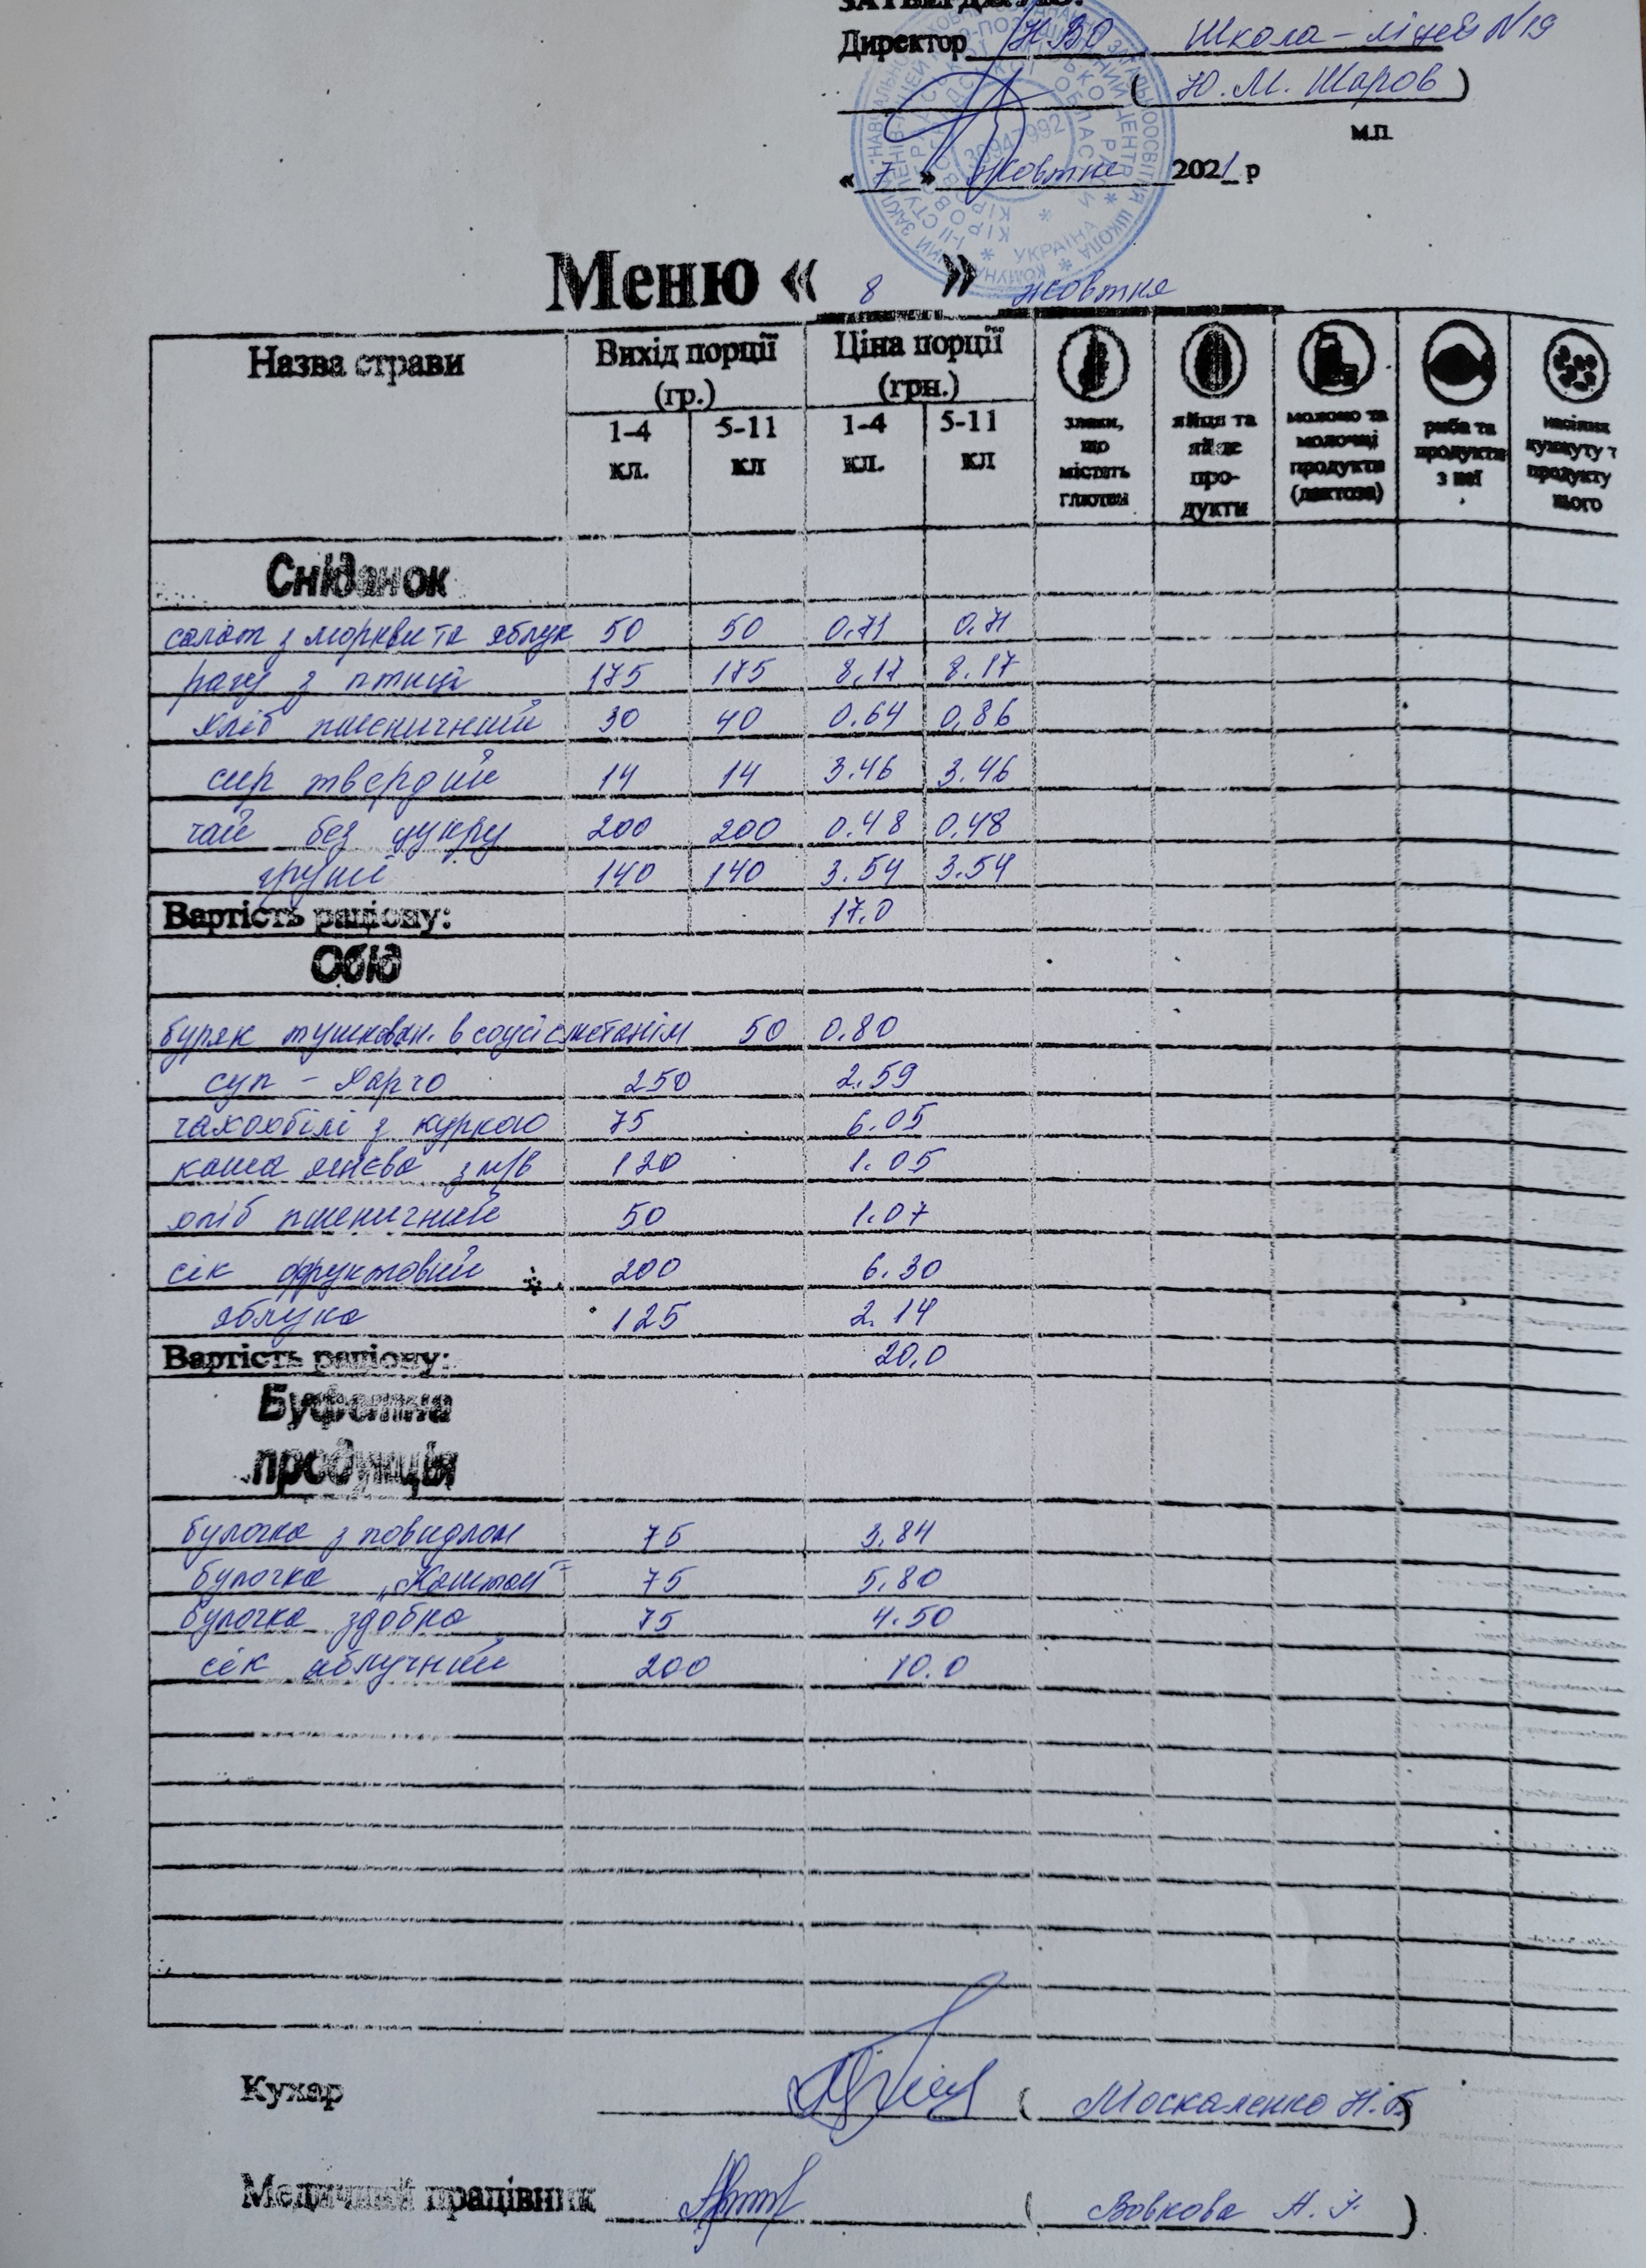 ЗАТВЕРДЖУЮ:
Директор НВО Школа-ліцей №19
( Ю.М. Шаров )
м.п.
« 7 » жовтня 2021 р
30947992
УКРАЇНА
Меню « 8 » жовтня
Назва страви Вихід порції (гр.) Ціна порції (грн.)
1-4 кл. 5-11 кл 1-4 кл. 5-11 кл
злаки, що містять глютен
яйця та яйце про-дукти
молоко та молочні продукти (лактоза)
риба та продукти з неї
насіння кунжуту т продукту нього
Сніданок
салат з моркви та яблук 50 50 0,71 0,71
рагу з птиці 175 175 8,17 8.17
хліб пшеничний 30 40 0.64 0,86
сир твердий 14 14 3.46 3.46
чай без цукру 200 200 0.48 0,48
груші 140 140 3.54 3.54
Вартість раціону: 17.0
Обід
буряк тушкован. в соусі сметанім 50 0.80
суп - Харчо 250 2.59
чахохбілі з куркою 75 6.05
каша ячнева з м/в 120 1.05
хліб пшеничний 50 1.07
сік фруктовий 200 6.30
яблука 125 2.14
Вартість раціону: 20,0
Буфетна
продукція
булочка з повидлом 75 3,84
булочка „Каштан" 75 5,80
булочка здобна 75 4.50
сік яблучний 200 10.0
Кухар ( Москаленко Н.Б. )
Медичний працівник ( Вовкова А. )